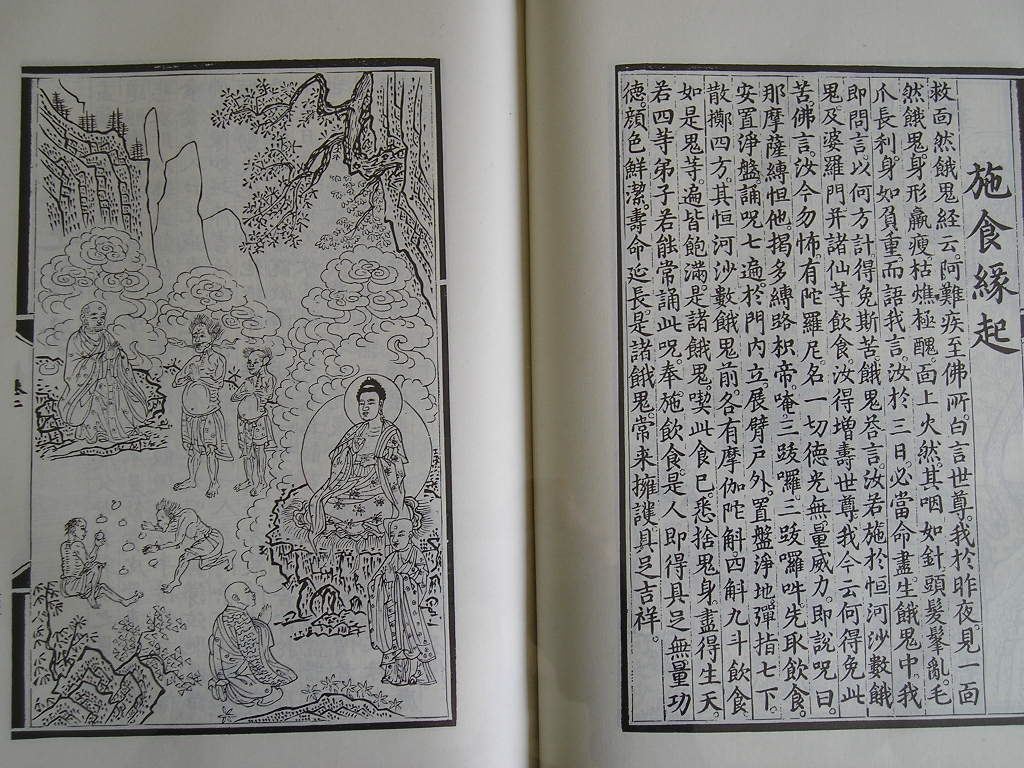 施食緣起
救面然餓鬼經云。阿難疾至佛所。白言世尊。我於昨夜。見一面
然餓鬼。身形羸瘦。枯燋極醜。面上火然。其咽如針。頭髮髼亂。毛
爪長利。身如負重。而語我言。汝於三日必當命盡。生餓鬼中。我
即問言。以何方計。得免斯苦。餓鬼荅言。汝若施於恒河沙數餓
鬼。及婆羅門并諸仙等飲食。汝得增壽。世尊。我今云何得免此
苦。佛言。汝今勿怖。有陀羅尼。名一切德光無量威力。即說呪曰。
那摩薩縛怛他揭多縛路枳帝。唵三跋囉。三跋囉吽。先取飲食。
安置淨盤。誦呪七遍。於門內立。展臂戶外。置盤淨地。彈指七下。
散擲四方。其恒河沙數餓鬼前。各有摩伽陀斛四斛九斗飲食。
如是鬼等。遍皆飽滿。是諸餓鬼。喫此食已。悉捨鬼身。盡得生天。
若四等弟子。若能常誦此呪。奉施飲食。是人即得具足無量功
德。顏色鮮潔。壽命延長。是諸餓鬼。常來擁護。具足吉祥。